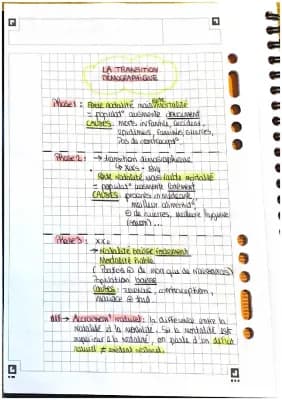 LA TRANSITION
DÉMOGRAPHIQUE
Phase 1 : Forte natalité mais forte mortalité
= populat° augmente doucement
CAUSES : morts infantiles, accident,
épidémies, famines, guerres,
pas de contracept°
Phase 2 : → transition démographique
→ XIXs -
Forte natalité mais faible mortalité
= populat° augmente
CAUSES : progrès en médecine,
meilleur alimentat°,
⊖ de guerres, meilleure hygiène
...
Phase 3 : XXs
→ Natalité baisse
Mortalité faible
(Parfois ⊕ de morts que de naissances)
Population baisse
CAUSES : contraception,
⊕ tard...
→ Accroissement naturel : la différence entre la
natalité et la mortalité. Si la mortalité est
supérieur à la natalité, on parle d'un déficit
naturel ≠ excédent naturel.